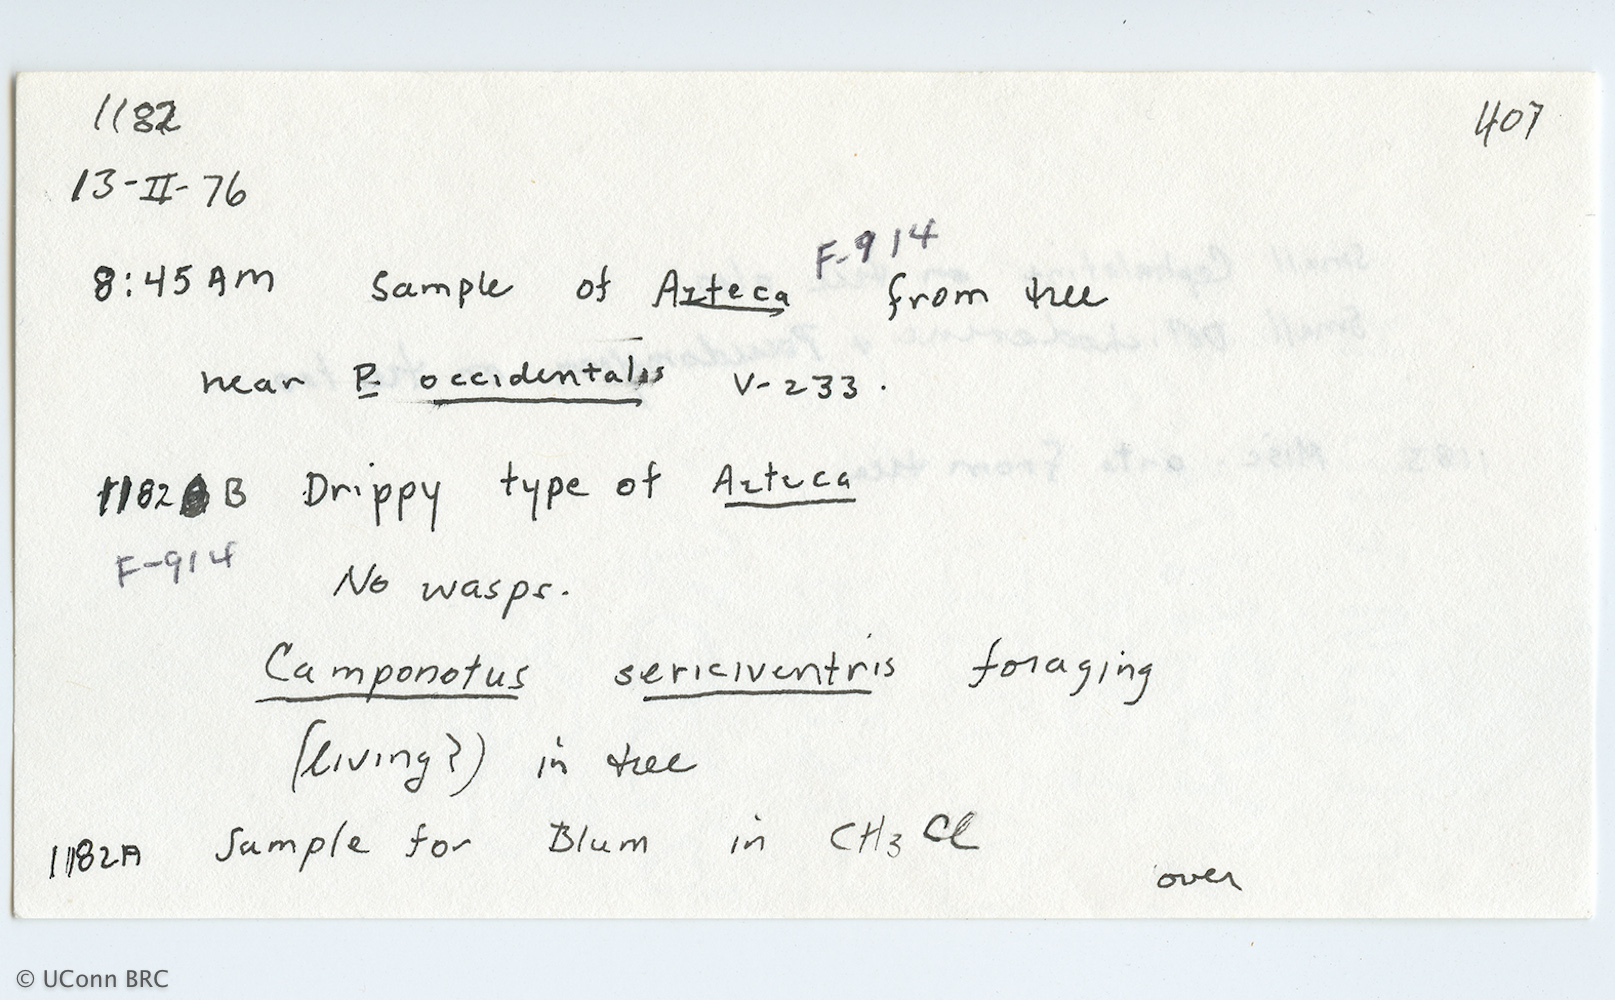 1182
407
13-II-76
F-914
8:45 AM Sample of Azteca from tree
near P. occidentalis V-233.
1182 B Drippy type of Azteca
F-914
No wasps.
Camponotus sericiventris foraging
(living?) in tree
1182A Sample for Blum in CH3Cl
over
© UConn BRC